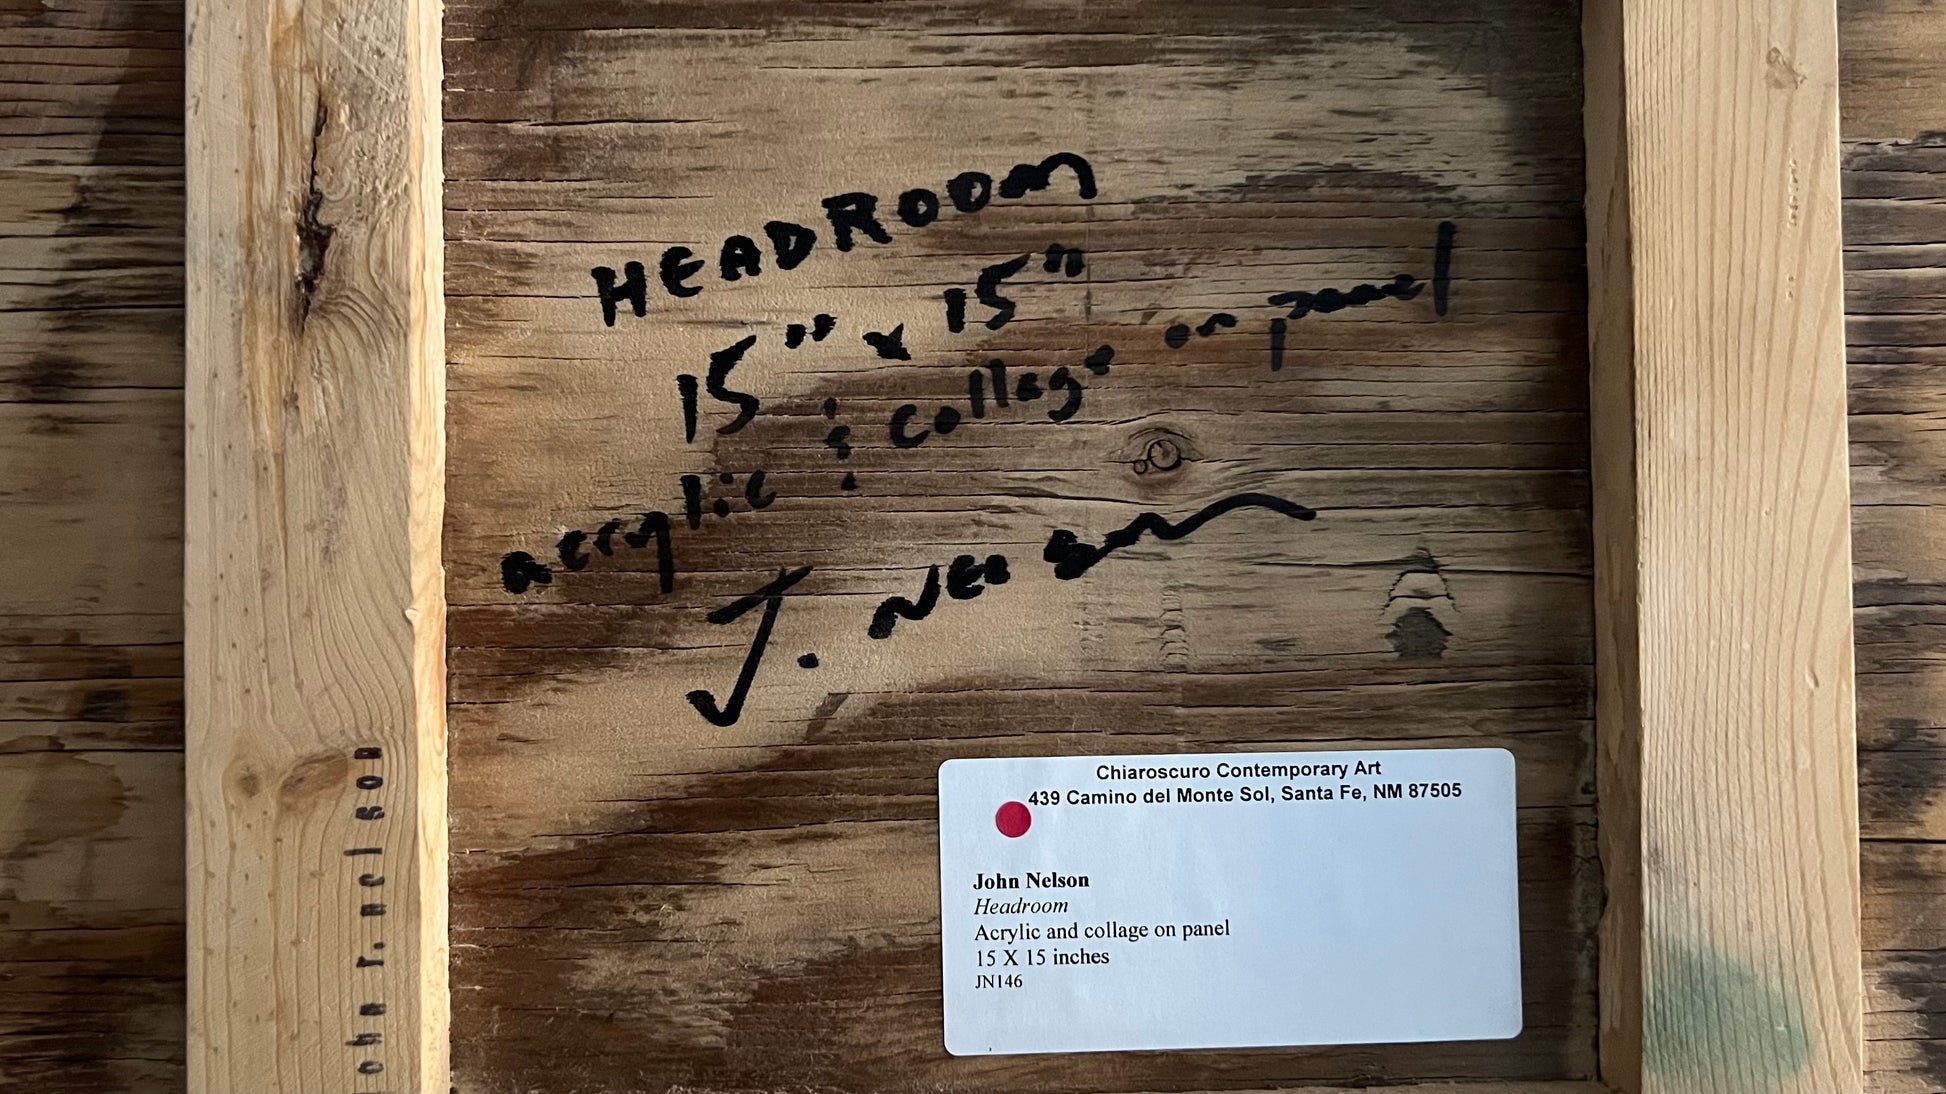 HEADROOM
15" x 15"
acrylic & collage on panel
J. NELSON
john r. nelson
Chiaroscuro Contemporary Art
439 Camino del Monte Sol, Santa Fe, NM 87505
John Nelson
Headroom
Acrylic and collage on panel
15 X 15 inches
JN146